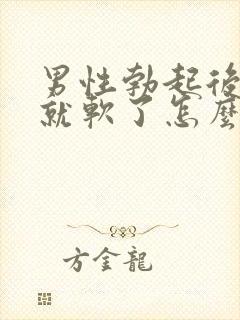 男性勃起後
就軟了怎麼
方金龍